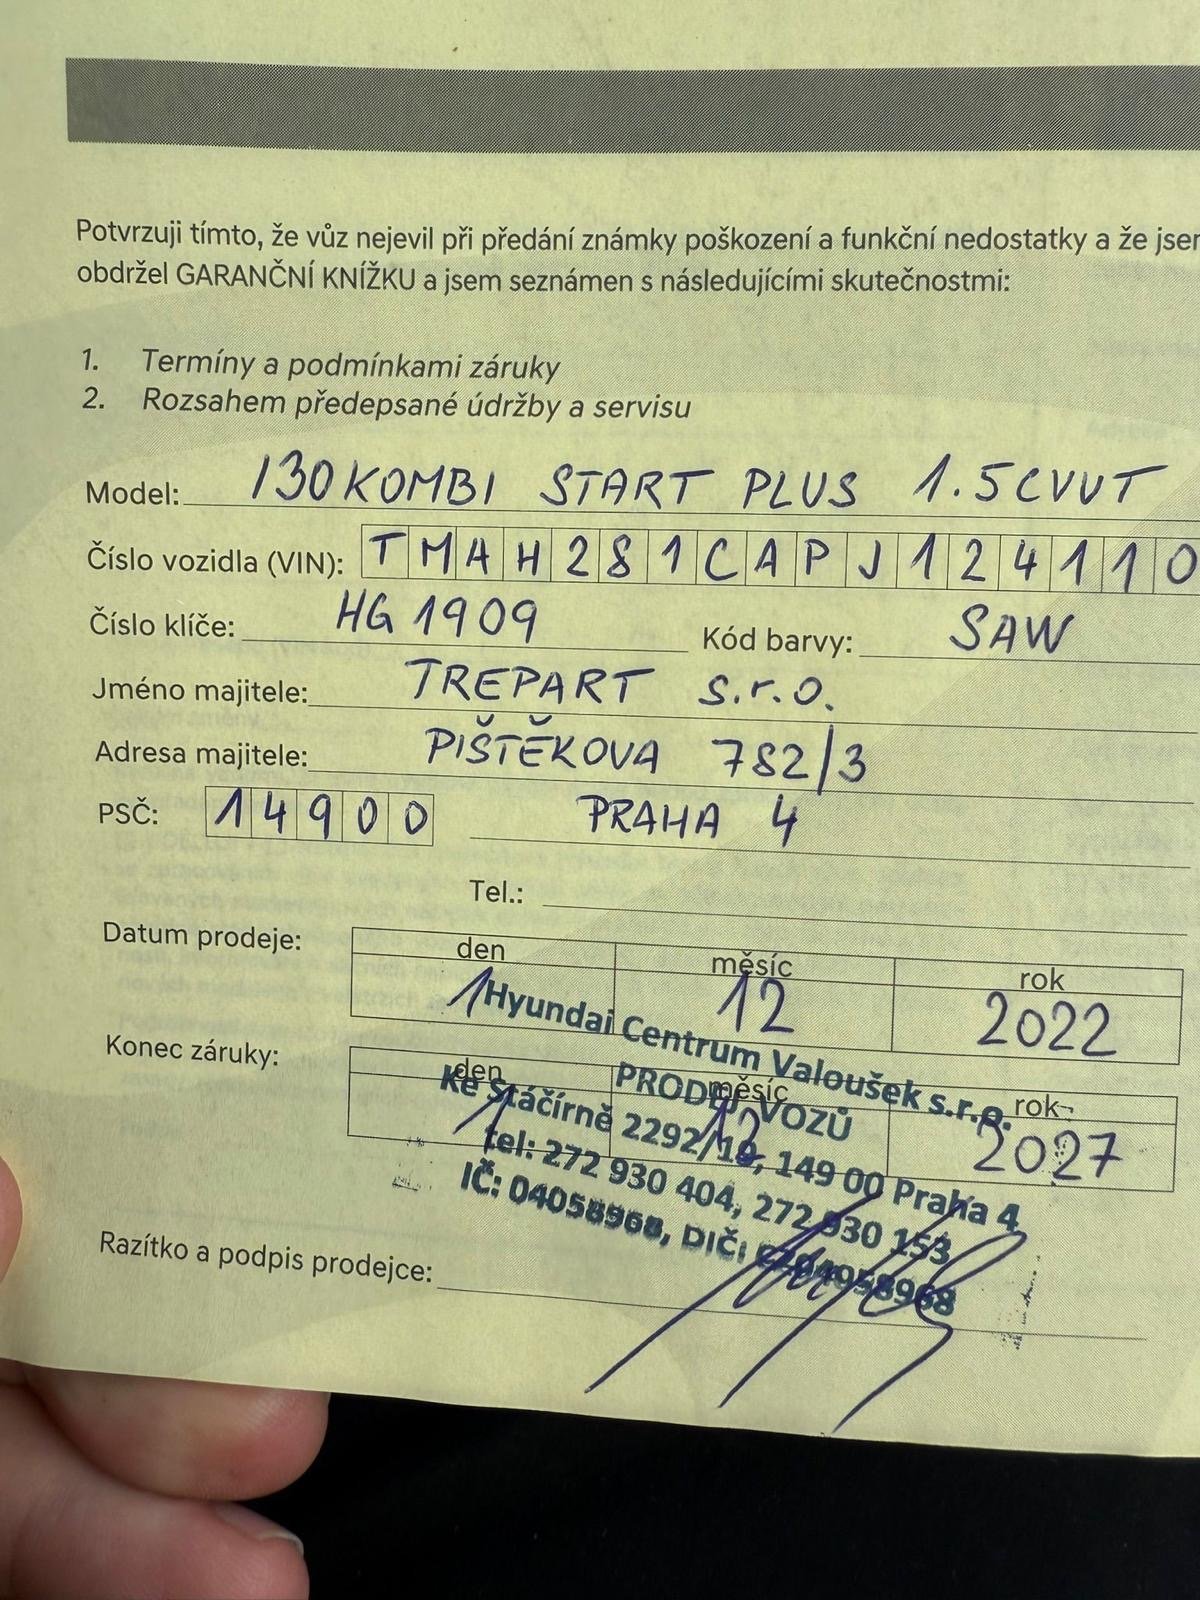 Potvrzuji tímto, že vůz nejevil při předání známky poškození a funkční nedostatky a že jsem
obdržel GARANČNÍ KNÍŽKU a jsem seznámen s následujícími skutečnostmi:
1. Termíny a podmínkami záruky
2. Rozsahem předepsané údržby a servisu
Model: I30 KOMBI START PLUS 1.5 CVVT
Číslo vozidla (VIN): TMAH281CAPJ124110
Číslo klíče: HG 1909 Kód barvy: SAW
Jméno majitele: TREPART s.r.o.
Adresa majitele: PIŠTĚKOVA 782/3
PSČ: 14900 PRAHA 4
Tel.:
Datum prodeje: den měsíc rok
1 12 2022
Konec záruky: den měsíc rok
1 12 2027
Hyundai Centrum Valoušek s.r.o.
PRODEJ VOZŮ
Ke Stáčírně 2292/10, 149 00 Praha 4
tel: 272 930 404, 272 930 153
IČ: 04058968, DIČ: CZ04058968
Razítko a podpis prodejce: